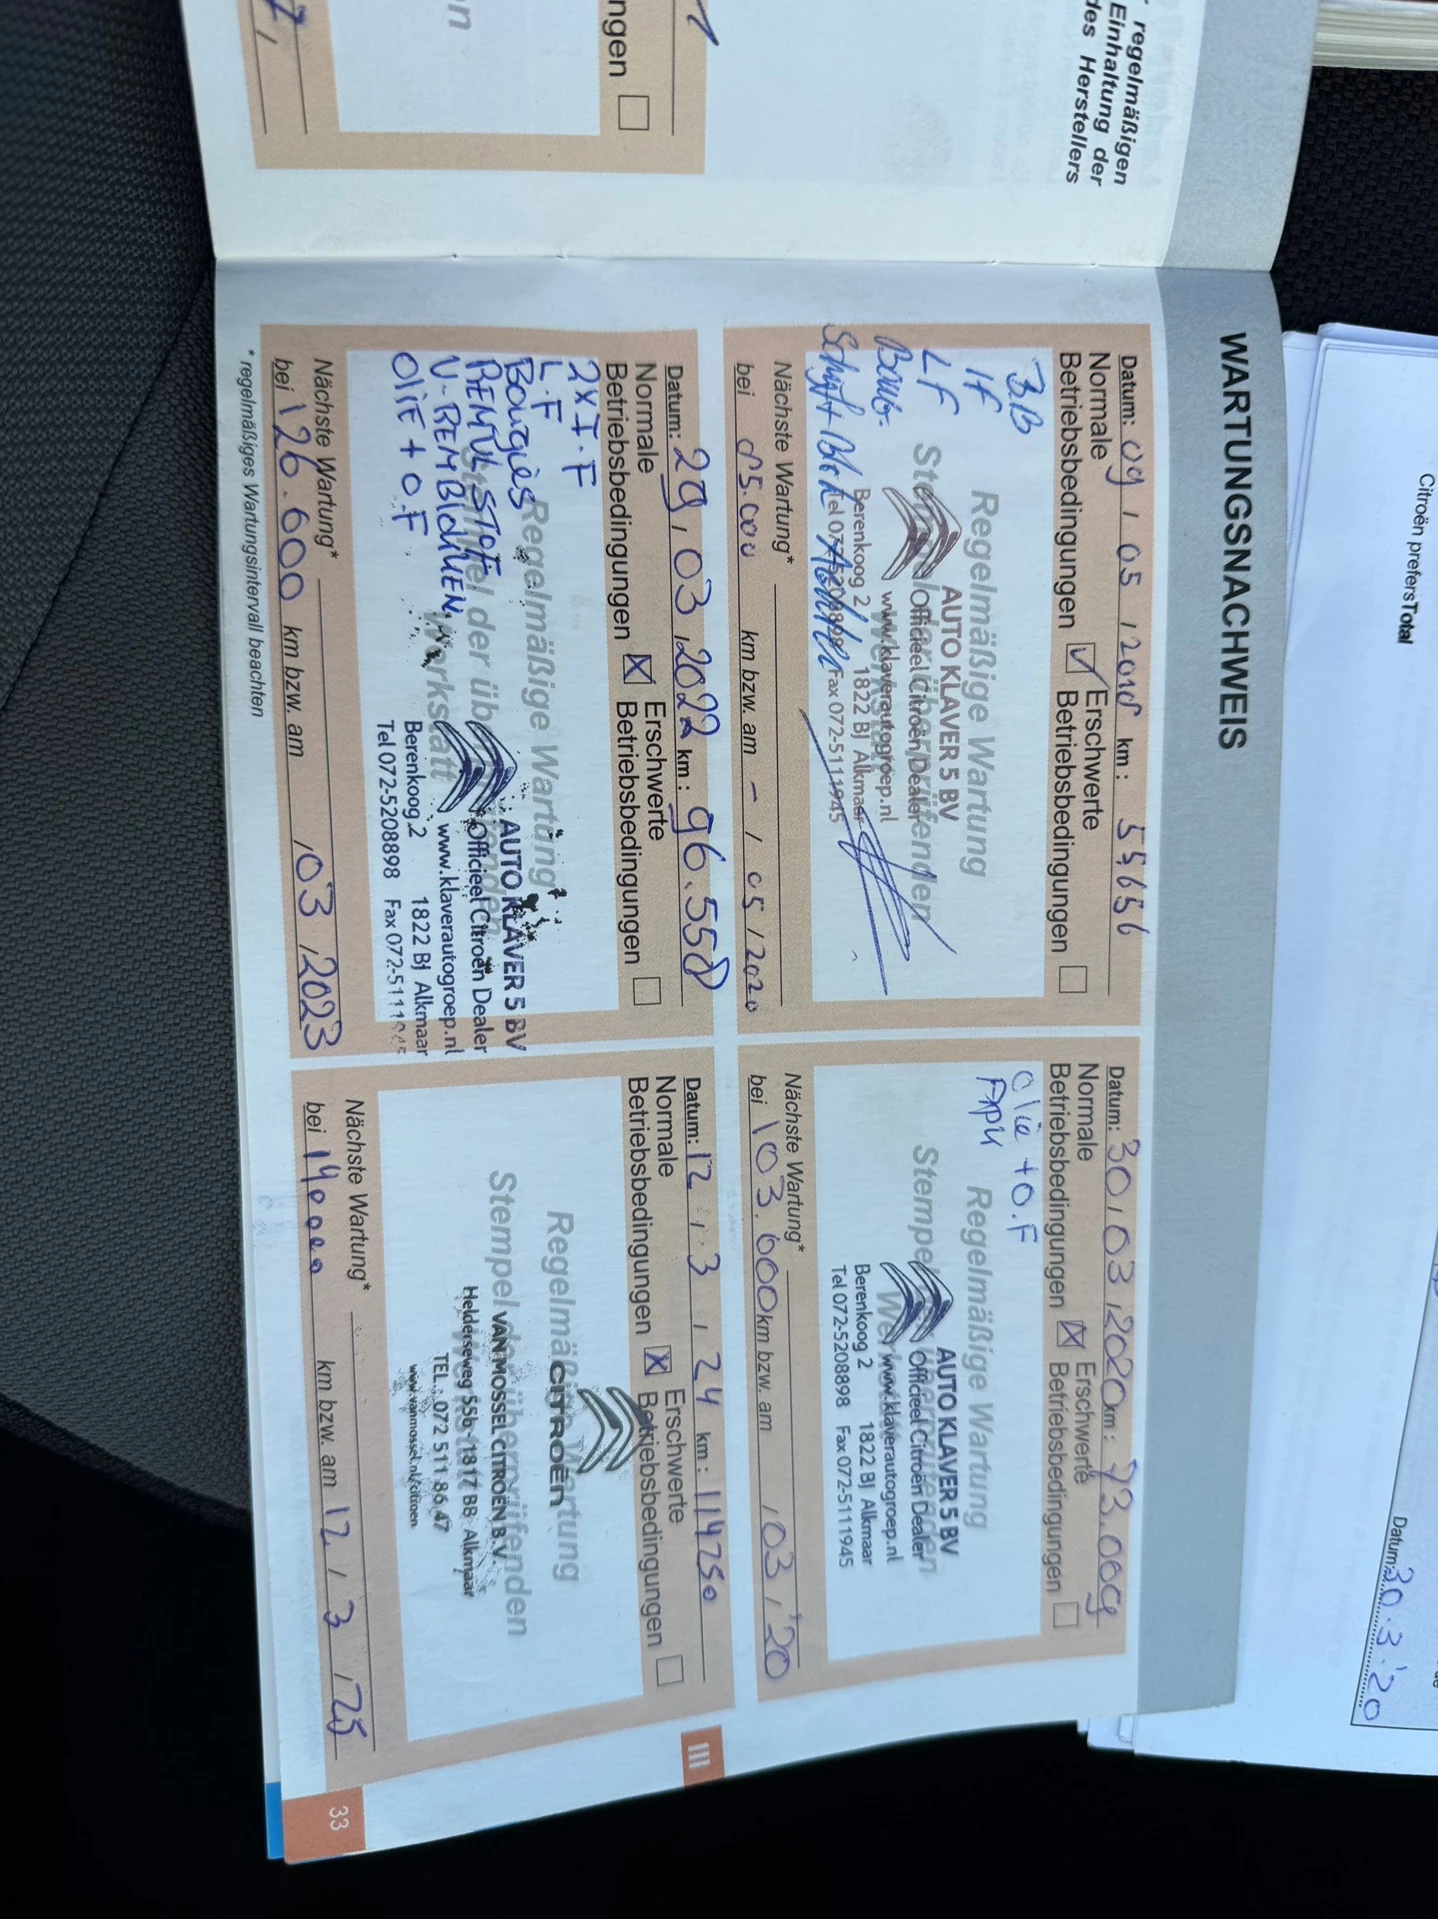 regelmäßigen
Einhaltung der
des Herstellers
ngen
Citroën prefers Total
Datum: 30.3.'20
WARTUNGSNACHWEIS
Datum: 09 / 05 / 2018 km: 55656
Normale
Betriebsbedingungen
Erschwerte
Betriebsbedingungen
IF
LF
Regelmäßige Wartung
AUTO KLAVER 5 BV
Officieel Citroën Dealer
www.klaverautogroep.nl
Berenkoog 2 1822 BJ Alkmaar
Tel 072-5208898 Fax 072-5111945
Nächste Wartung*
bei 85.000 km bzw. am - / 05 / 2020
Datum: 30 / 03 / 2020 km: 73.009
Normale
Betriebsbedingungen
Erschwerte
Betriebsbedingungen
Olie + O.F
Regelmäßige Wartung
AUTO KLAVER 5 BV
Officieel Citroën Dealer
www.klaverautogroep.nl
Berenkoog 2 1822 BJ Alkmaar
Tel 072-5208898 Fax 072-5111945
Nächste Wartung*
bei 103.000 km bzw. am / 03 / '20
Datum: 29 / 03 / 2022 km: 96.558
Normale
Betriebsbedingungen
Erschwerte
Betriebsbedingungen
2x I.F
L.F
Bougiès
REMVLSTOF
V-REMBLOKKEN
OLIE + O.F
Regelmäßige Wartung
Stempel der überprüfenden
Werkstatt
AUTO KLAVER 5 BV
Officieel Citroën Dealer
www.klaverautogroep.nl
Berenkoog 2 1822 BJ Alkmaar
Tel 072-5208898 Fax 072-5111945
Nächste Wartung*
bei 126.600 km bzw. am / 03 / 2023
* regelmäßiges Wartungsintervall beachten
Datum: 12 / 3 / 24 km: 114750
Normale
Betriebsbedingungen
Erschwerte
Betriebsbedingungen
Regelmäßige Wartung
Stempel der überprüfenden
CITROËN
VAN MOSSEL CITROËN B.V.
Helderseweg 55b - 1817 BB Alkmaar
TEL.: 072 511 86 47
www.vanmossel.nl/citroen
Nächste Wartung*
bei 140000 km bzw. am 12 / 3 / 25
III
33